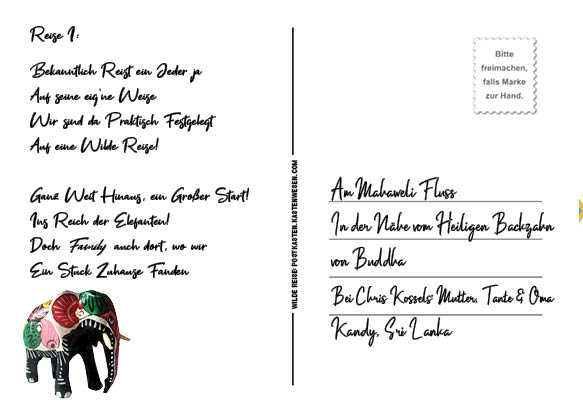 Reise 1:
Bekanntlich Reist ein Jeder ja
Auf seine eig'ne Weise
Wir sind da Praktisch Festgelegt
Auf eine Wilde Reise!
Ganz Weit Hinaus, ein Großer Start!
Ins Reich der Elefanten!
Doch Family auch dort, wo wir
Ein Stück Zuhause Fanden
WILDE REISE: POSTKASTEN.KASTENWESEN.COM
Bitte
freimachen,
falls Marke
zur Hand.
Am Mahaweli Fluss
In der Nähe vom Heiligen Backzahn
von Buddha
Bei Chris Kossels' Mutter, Tante & Oma
Kandy, Sri Lanka